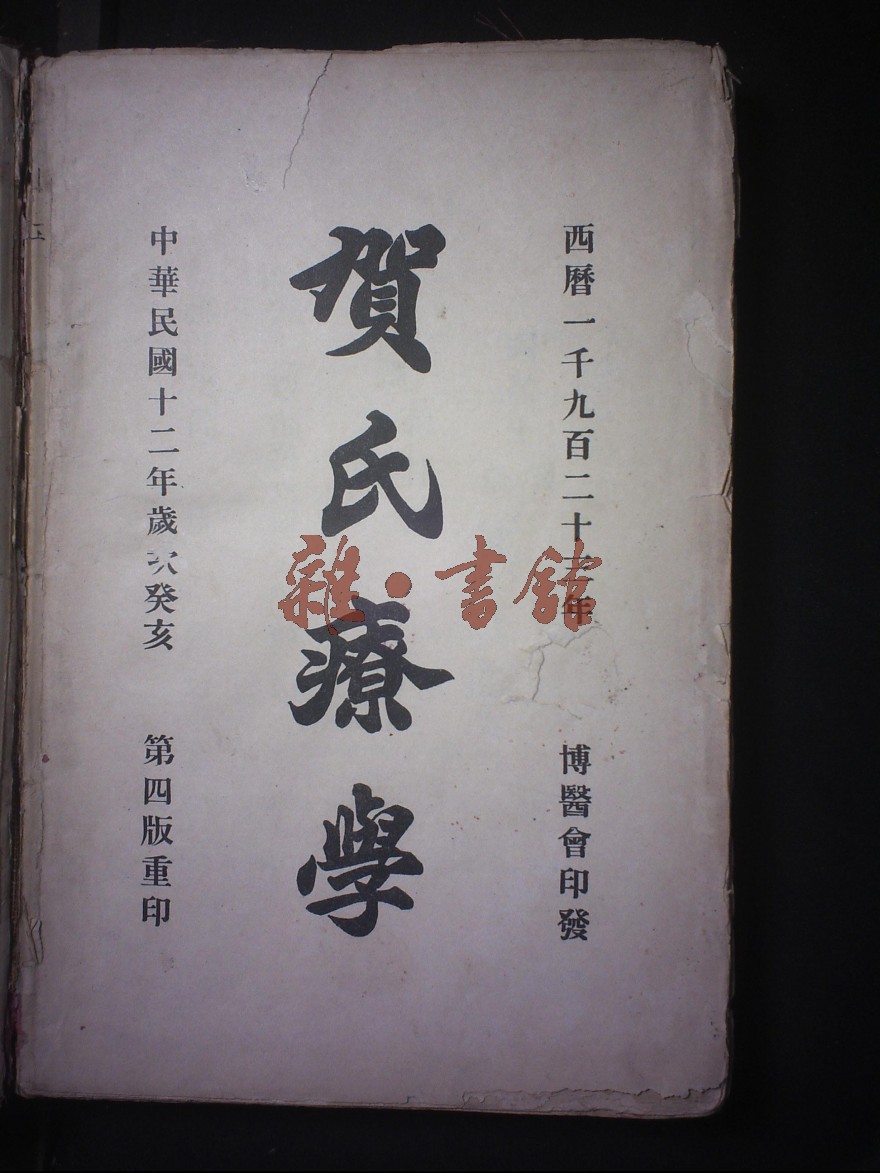 西曆一千九百二十三年
博醫會印發
賀氏療學
中華民國十二年歲次癸亥
第四版重印
雜·書館